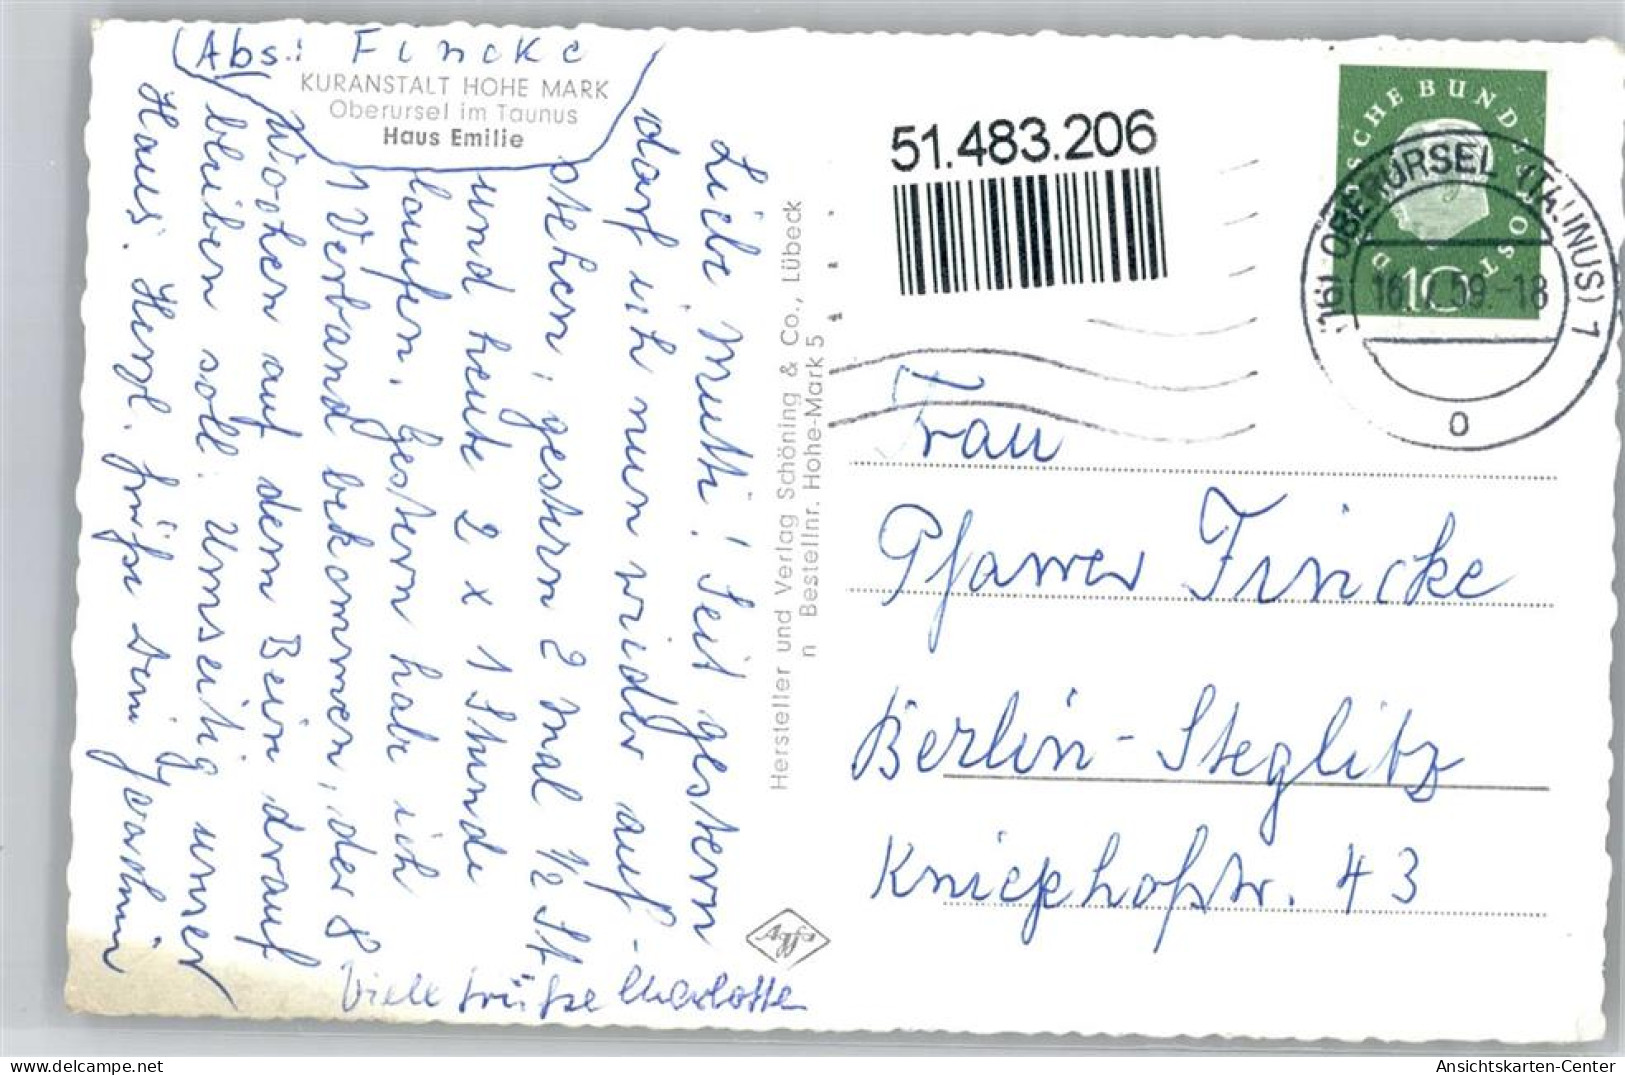 Abs.: Fincke
KURANSTALT HOHE MARK
Oberursel im Taunus
Haus Emilie
Liebe Mutti! Seit gestern
darf ich nun wieder auf-
stehen, gestern 2 mal 1/2 St.
und heute 2 x 1 Stunde
laufen. Gestern habe ich
1 Verband bekommen, der 8
Wochen auf dem Bein drauf
bleiben soll. Umseitig unser
Haus. Herzl. Grüße Dein
Viele Grüße Charlotte
Hersteller und Verlag Schöning & Co., Lübeck
n Bestellnr. Hohe-Mark 5
Agfa
51.483.206
DEUTSCHE BUNDESPOST
10
(16) OBERURSEL (TAUNUS) 1
59.-18
o
Frau
Pfarrer Fincke
Berlin-Steglitz
Kniephofstr. 43
Ansichtskarten-Center